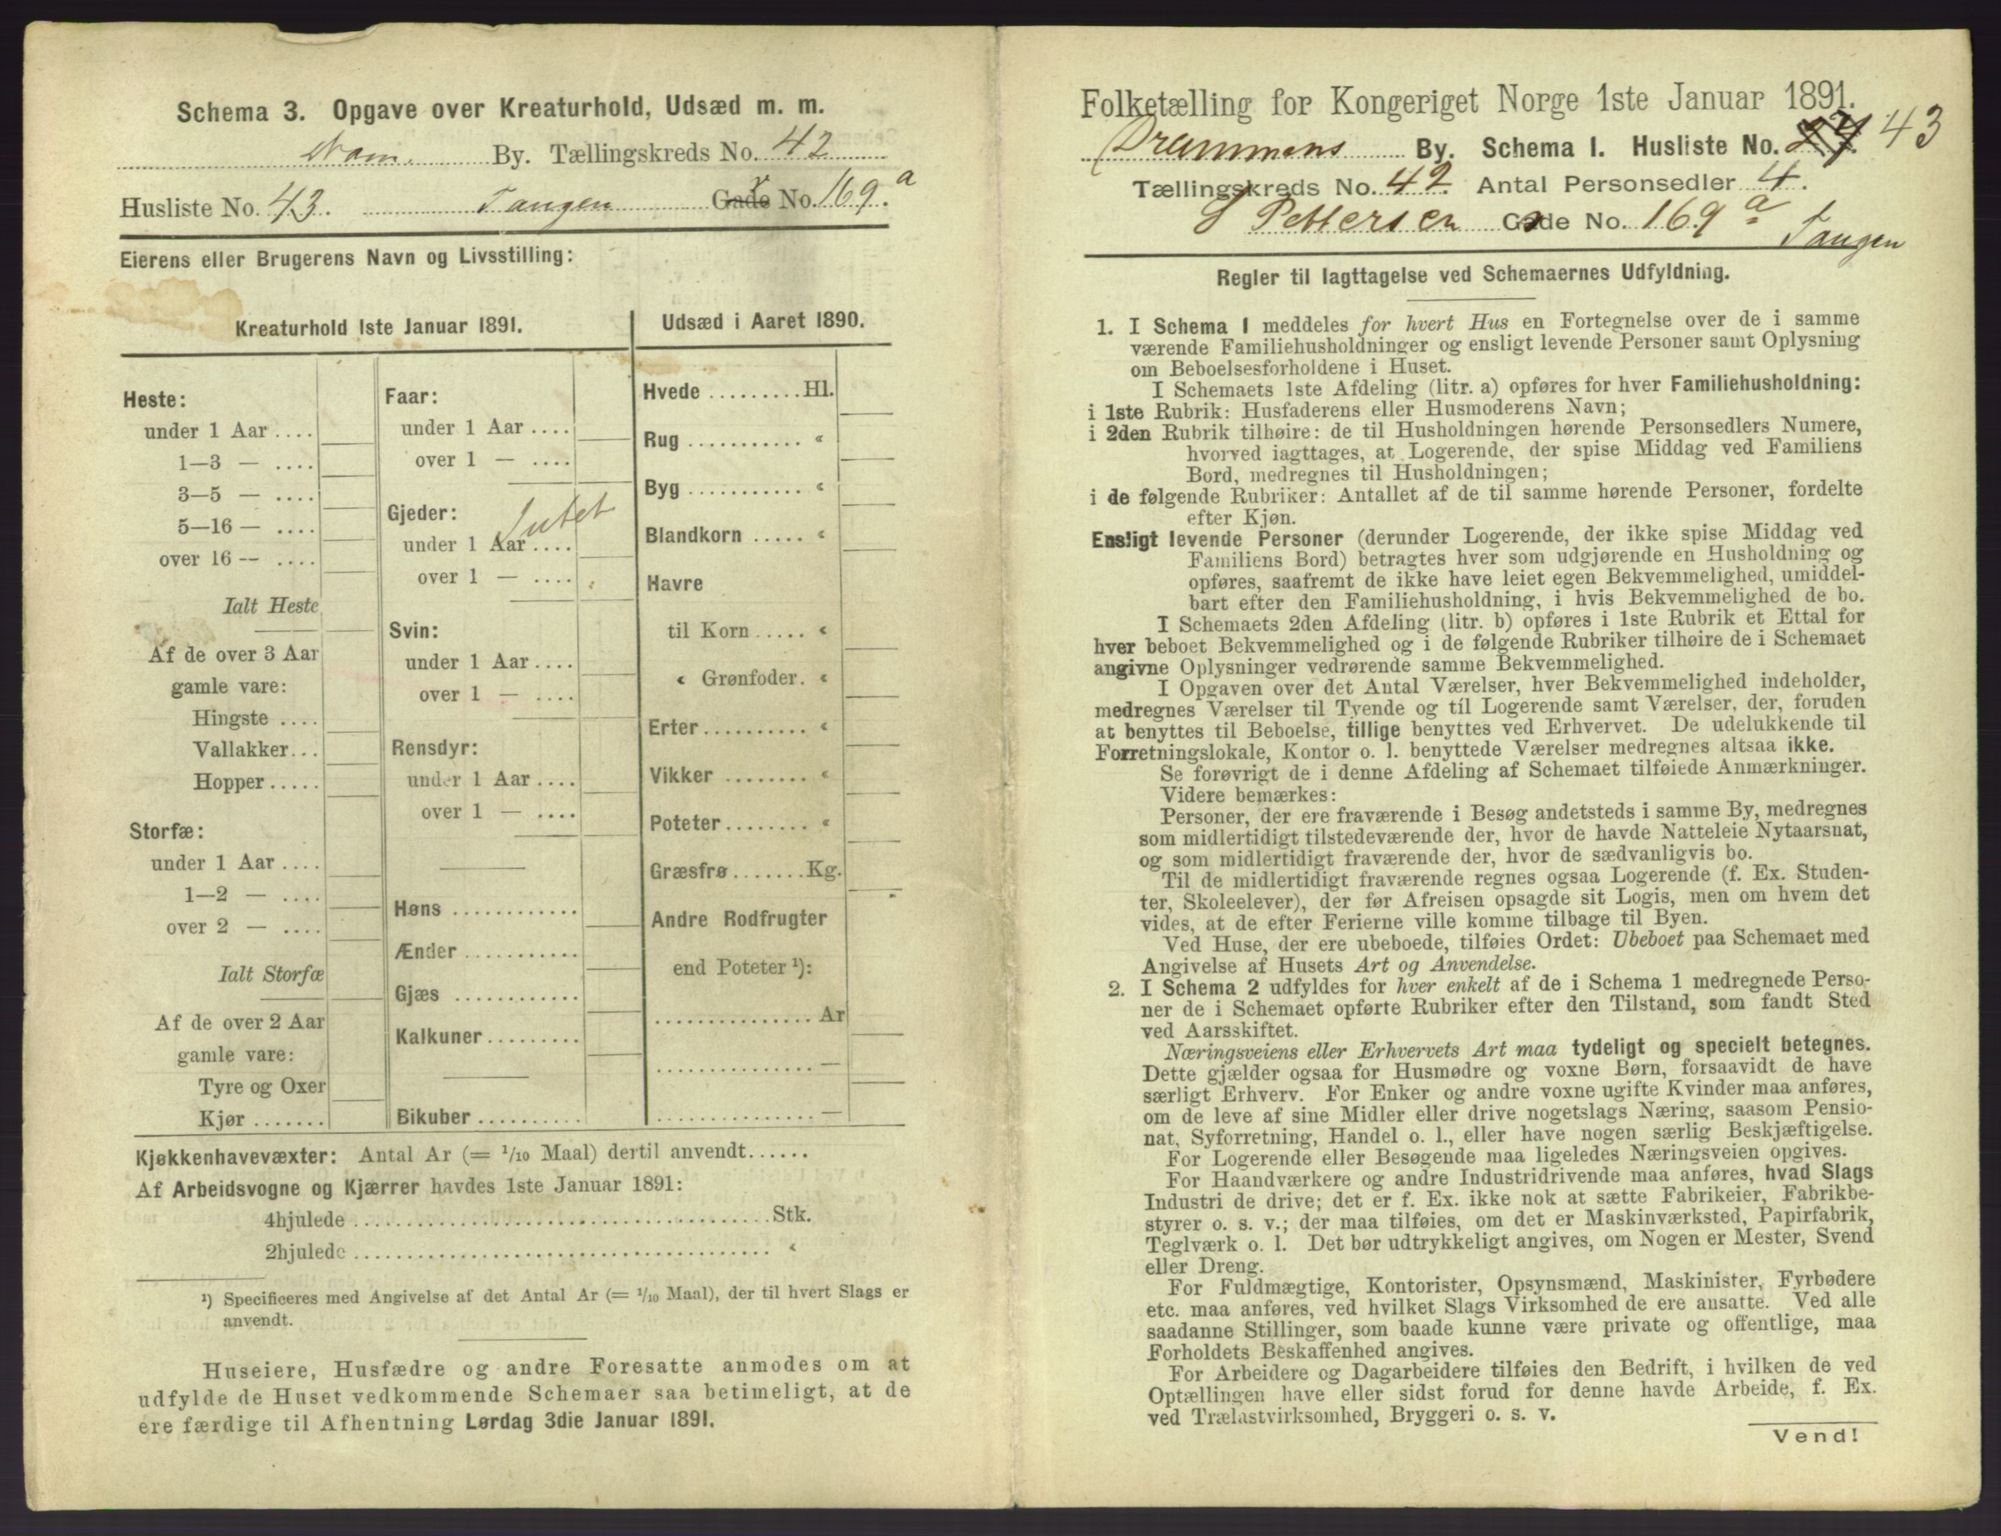 Schema 3. Opgave over Kreaturhold, Udsæd m. m.
By. Tællingskreds No. 42
Husliste No. 43. Tangen Gade No. 169 a
Eierens eller Brugerens Navn og Livsstilling:
Kreaturhold 1ste Januar 1891.
Heste:
under 1 Aar ....
1—3 — ....
3—5 — ....
5—16 — ....
over 16 — ....
Ialt Heste
Af de over 3 Aar
gamle vare:
Hingste ....
Vallakker...
Hopper.....
Storfæ:
under 1 Aar ....
1—2 — ....
over 2 — ....
Ialt Storfæ
Af de over 2 Aar
gamle vare:
Tyre og Oxer
Kjør .......
Faar:
under 1 Aar ....
over 1 — ....
Gjeder: Intet
under 1 Aar ....
over 1 — ....
Svin:
under 1 Aar ....
over 1 — ....
Rensdyr:
under 1 Aar ....
over 1 — ....
Høns ............
Ænder ...........
Gjæs ............
Kalkuner .........
Bikuber ..........
Udsæd i Aaret 1890.
Hvede .........Hl.
Rug ........... «
Byg ........... «
Blandkorn ..... «
Havre
til Korn ..... «
« Grønfoder. «
Erter .......... «
Vikker ........ «
Poteter ........ «
Græsfrø .......Kg.
Andre Rodfrugter
end Poteter ¹):
...............Ar
............... —
............... —
Kjøkkenhavevæxter: Antal Ar (= 1/10 Maal) dertil anvendt......
Af Arbeidsvogne og Kjærrer havdes 1ste Januar 1891:
4hjulede ........................................Stk.
2hjulede ........................................ «
¹) Specificeres med Angivelse af det Antal Ar (= 1/10 Maal), der til hvert Slags er
anvendt.
Huseiere, Husfædre og andre Foresatte anmodes om at
udfylde de Huset vedkommende Schemaer saa betimeligt, at de
ere færdige til Afhentning Lørdag 3die Januar 1891.
Folketælling for Kongeriget Norge 1ste Januar 1891.
Drammens By. Schema 1. Husliste No. 43
Tællingskreds No. 42 Antal Personsedler 4.
S Pettersen Gade No. 169 a Tangen
Regler til Iagttagelse ved Schemaernes Udfyldning.
1. I Schema 1 meddeles for hvert Hus en Fortegnelse over de i samme
værende Familiehusholdninger og ensligt levende Personer samt Oplysning
om Beboelsesforholdene i Huset.
I Schemaets 1ste Afdeling (litr. a) opføres for hver Familiehusholdning:
i 1ste Rubrik: Husfaderens eller Husmoderens Navn;
i 2den Rubrik tilhøire: de til Husholdningen hørende Personsedlers Numere,
hvorved iagttages, at Logerende, der spise Middag ved Familiens
Bord, medregnes til Husholdningen;
i de følgende Rubriker: Antallet af de til samme hørende Personer, fordelte
efter Kjøn.
Ensligt levende Personer (derunder Logerende, der ikke spise Middag ved
Familiens Bord) betragtes hver som udgjørende en Husholdning og
opføres, saafremt de ikke have leiet egen Bekvemmelighed, umiddel-
bart efter den Familiehusholdning, i hvis Bekvemmelighed de bo.
I Schemaets 2den Afdeling (litr. b) opføres i 1ste Rubrik et Ettal for
hver beboet Bekvemmelighed og i de følgende Rubriker tilhøire de i Schemaet
angivne Oplysninger vedrørende samme Bekvemmelighed.
I Opgaven over det Antal Værelser, hver Bekvemmelighed indeholder,
medregnes Værelser til Tyende og til Logerende samt Værelser, der, foruden
at benyttes til Beboelse, tillige benyttes ved Erhvervet. De udelukkende til
Forretningslokale, Kontor o. l. benyttede Værelser medregnes altsaa ikke.
Se forøvrigt de i denne Afdeling af Schemaet tilføiede Anmærkninger.
Videre bemærkes:
Personer, der ere fraværende i Besøg andetsteds i samme By, medregnes
som midlertidigt tilstedeværende der, hvor de havde Natteleie Nytaarsnat,
og som midlertidigt fraværende der, hvor de sædvanligvis bo.
Til de midlertidigt fraværende regnes ogsaa Logerende (f. Ex. Studen-
ter, Skoleelever), der før Afreisen opsagde sit Logis, men om hvem det
vides, at de efter Ferierne ville komme tilbage til Byen.
Ved Huse, der ere ubeboede, tilføies Ordet: Ubeboet paa Schemaet med
Angivelse af Husets Art og Anvendelse.
2. I Schema 2 udfyldes for hver enkelt af de i Schema 1 medregnede Perso-
ner de i Schemaet opførte Rubriker efter den Tilstand, som fandt Sted
ved Aarsskiftet.
Næringsveiens eller Erhvervets Art maa tydeligt og specielt betegnes.
Dette gjælder ogsaa for Husmødre og voxne Børn, forsaavidt de have
særligt Erhverv. For Enker og andre voxne ugifte Kvinder maa anføres,
om de leve af sine Midler eller drive nogetslags Næring, saasom Pensio-
nat, Syforretning, Handel o. l., eller have nogen særlig Beskjæftigelse.
For Logerende eller Besøgende maa ligeledes Næringsveien opgives.
For Haandværkere og andre Industridrivende maa anføres, hvad Slags
Industri de drive; det er f. Ex. ikke nok at sætte Fabrikeier, Fabrikbe-
styrer o. s. v.; der maa tilføies, om det er Maskinværksted, Papirfabrik,
Teglværk o. l. Det bør udtrykkeligt angives, om Nogen er Mester, Svend
eller Dreng.
For Fuldmægtige, Kontorister, Opsynsmænd, Maskinister, Fyrbødere
etc. maa anføres, ved hvilket Slags Virksomhed de ere ansatte. Ved alle
saadanne Stillinger, som baade kunne være private og offentlige, maa
Forholdets Beskaffenhed angives.
For Arbeidere og Dagarbeidere tilføies den Bedrift, i hvilken de ved
Optællingen have eller sidst forud for denne havde Arbeide, f. Ex.
ved Trælastvirksomhed, Bryggeri o. s. v.
Vend!